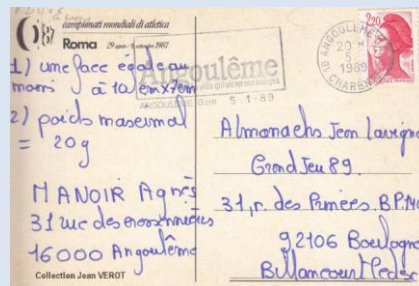 campionati mondiali di atletica
87 Roma 29 agosto / 6 settembre 1987
1) une face égale au
moins à 10,5cm x 7cm
2) poids maximal
= 20g
MANOIR Agnès
31 rue des
16000 Angoulême
Collection Jean VEROT
Angoulême
ANGOULEME Gare 5-1-89
16 ANGOULEME
20 H
5
1989
CHARENTE
2,20
Almanachs Jean Lavigne
Grand Jeu 89.
31, r. des Pinsées. B.P.
92106 Boulogne
Billancourt Cedex